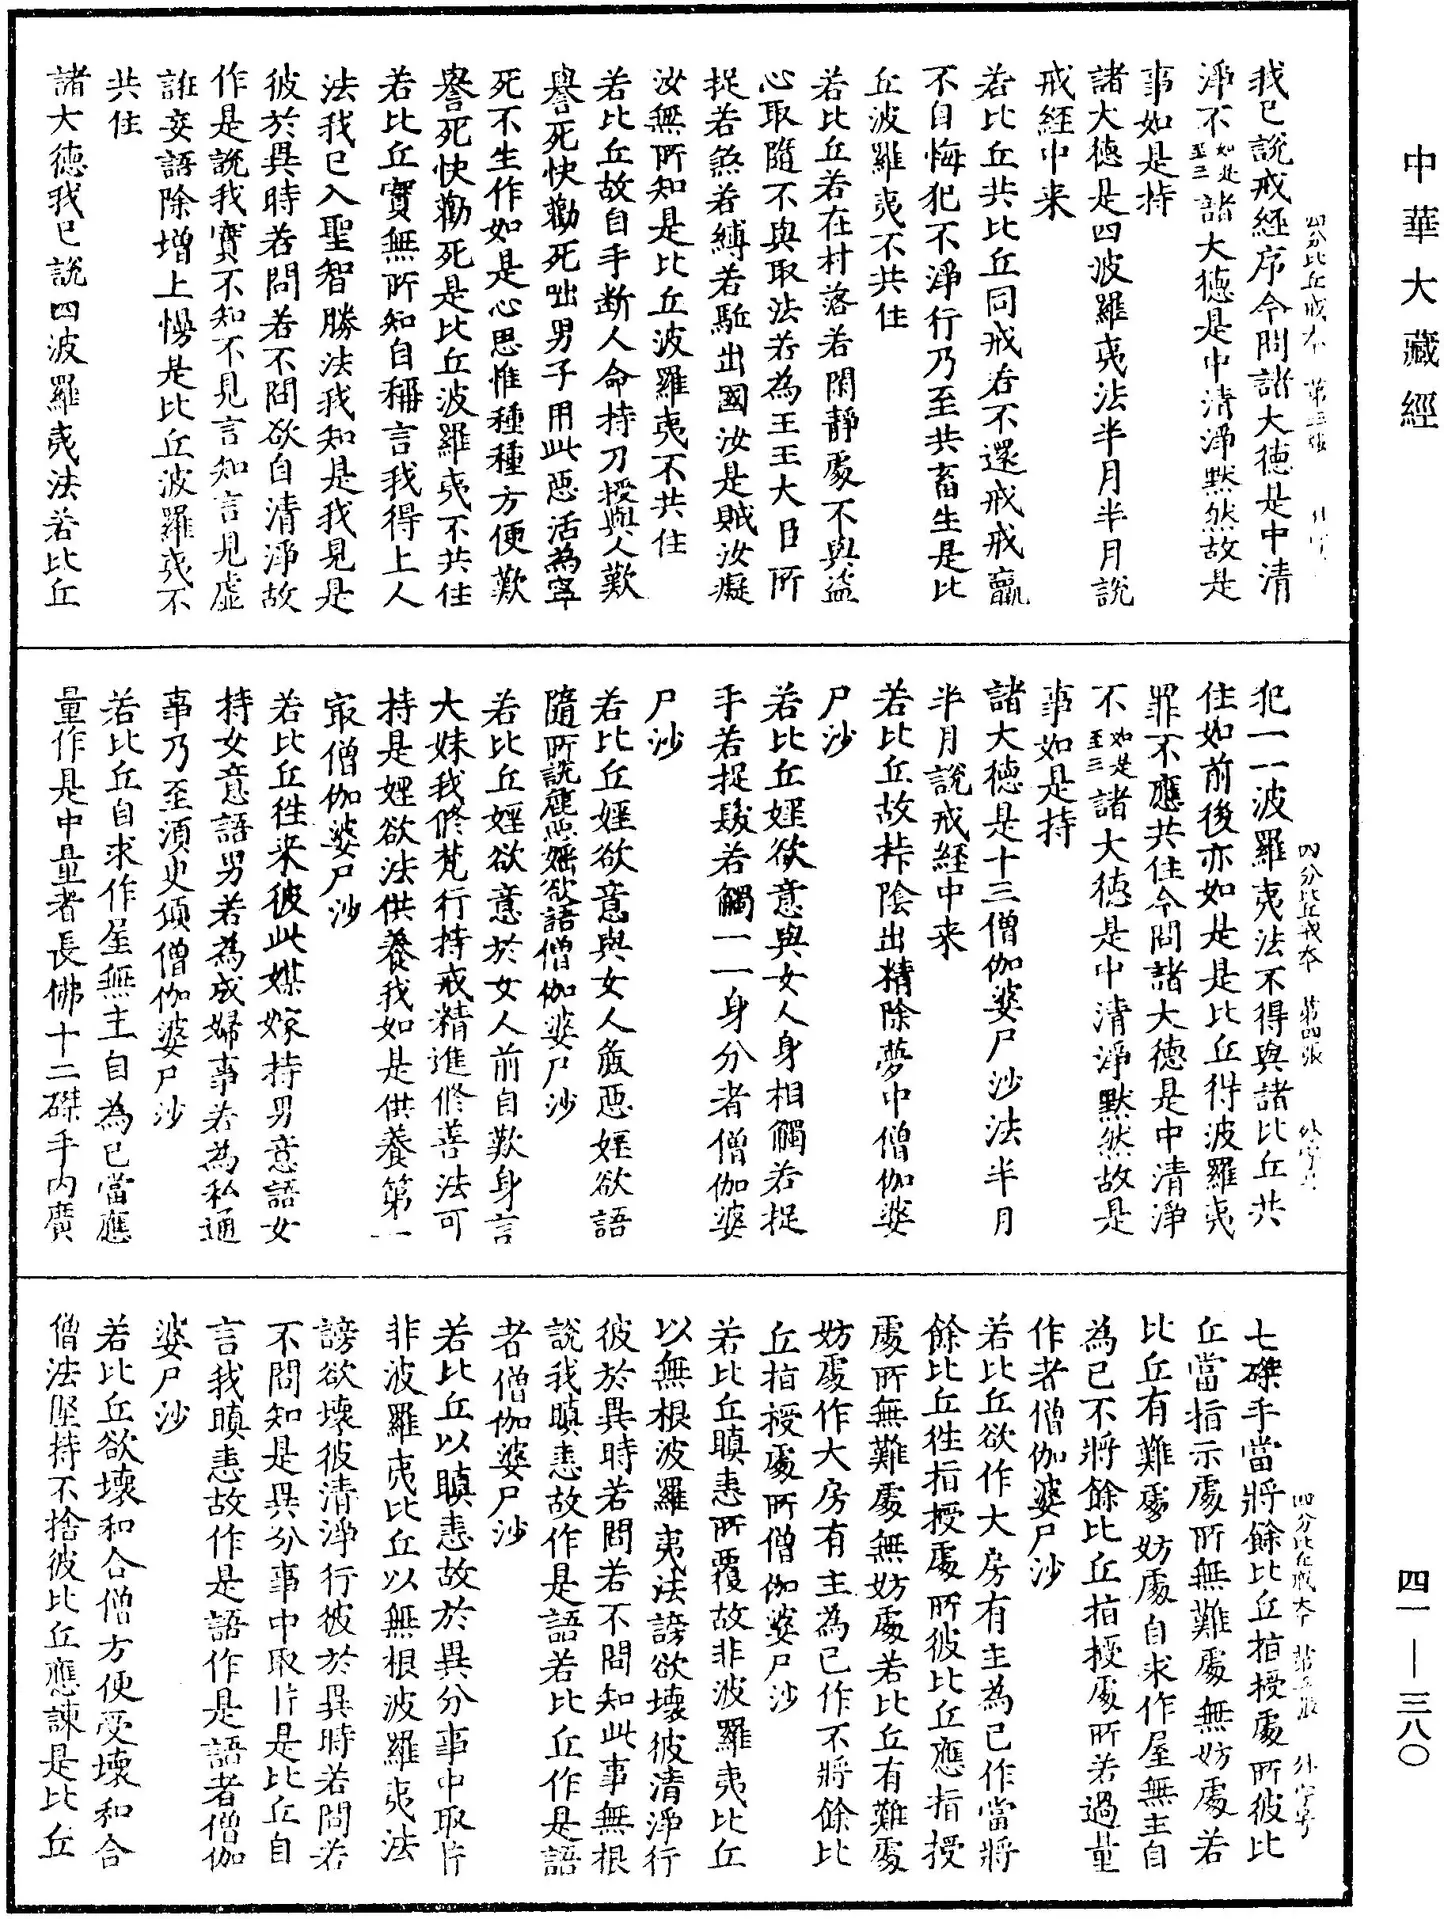 中華大藏經
四一—三八〇
四分比丘戒本 第三張 外字号
我已說戒經序今問諸大德是中清
淨不如是至三諸大德是中清淨默然故是
事如是持
諸大德是四波羅夷法半月半月說
戒經中来
若比丘共比丘同戒若不還戒戒羸
不自悔犯不淨行乃至共畜生是比
丘波羅夷不共住
若比丘若在村落若閑靜處不與盜
心取隨不與取法若為王王大臣所
捉若煞若縛若駈出國汝是賊汝癡
汝無所知是比丘波羅夷不共住
若比丘故自手斷人命持刀授與人歎
譽死快勸死咄男子用此惡活為寧
死不生作如是心思惟種種方便歎
譽死快勸死是比丘波羅夷不共住
若比丘實無所知自稱言我得上人
法我已入聖智勝法我知是我見是
彼於異時若問若不問欲自清淨故
作是說我實不知不見言知言見虛
誑妄語除增上慢是比丘波羅夷不
共住
諸大德我已說四波羅夷法若比丘
四分比丘戒本 第四張 外字号
犯一一波羅夷法不得與諸比丘共
住如前後亦如是是比丘得波羅夷
罪不應共住今問諸大德是中清淨
不如是至三諸大德是中清淨默然故是
事如是持
諸大德是十三僧伽婆尸沙法半月
半月說戒經中来
若比丘故㭊陰出精除夢中僧伽婆
尸沙
若比丘婬欲意與女人身相觸若捉
手若捉髮若觸一一身分者僧伽婆
尸沙
若比丘婬欲意與女人麁惡婬欲語
隨所說麁惡婬欲語僧伽婆尸沙
若比丘婬欲意於女人前自歎身言
大妹我修梵行持戒精進修善法可
持是婬欲法供養我如是供養第一
㝡僧伽婆尸沙
若比丘往来彼此媒嫁持男意語女
持女意語男若為成婦事若為私通
事乃至須臾傾僧伽婆尸沙
若比丘自求作屋無主自為已當應
量作是中量者長佛十二磔手內廣
四分比丘戒本 第五張 外字号
七磔手當將餘比丘指授處所彼比
丘當指示處所無難處無妨處若
比丘有難處妨處自求作屋無主自
為已不將餘比丘指授處所若過量
作者僧伽婆尸沙
若比丘欲作大房有主為已作當將
餘比丘往指授處所彼比丘應指授
處所無難處無妨處若比丘有難處
妨處作大房有主為已作不將餘比
丘指授處所僧伽婆尸沙
若比丘瞋恚所覆故非波羅夷比丘
以無根波羅夷法謗欲壞彼清淨行
彼於異時若問若不問知此事無根
說我瞋恚故作是語若比丘作是語
者僧伽婆尸沙
若比丘以瞋恚故於異分事中取片
非波羅夷比丘以無根波羅夷法
謗欲壞彼清淨行彼於異時若問若
不問知是異分事中取片是比丘自
言我瞋恚故作是語作是語者僧伽
婆尸沙
若比丘欲壞和合僧方便受壞和合
僧法堅持不捨彼比丘應諫是比丘